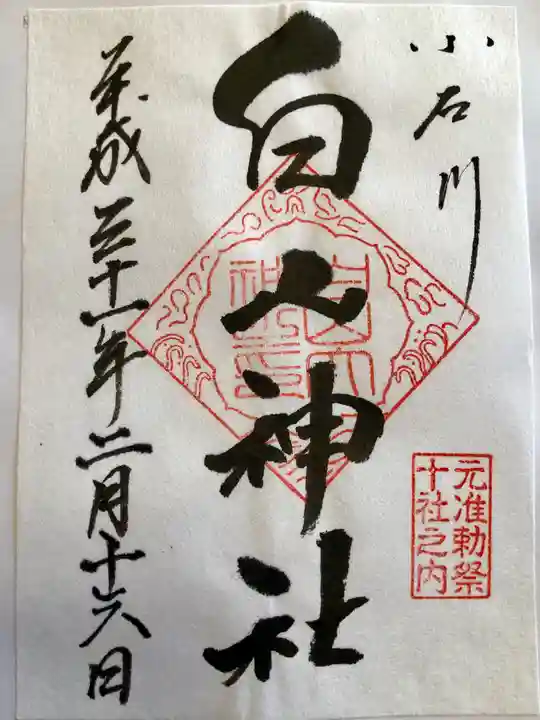 小石川
白山神社
元准勅祭
十社之内
平成三十一年二月十六日